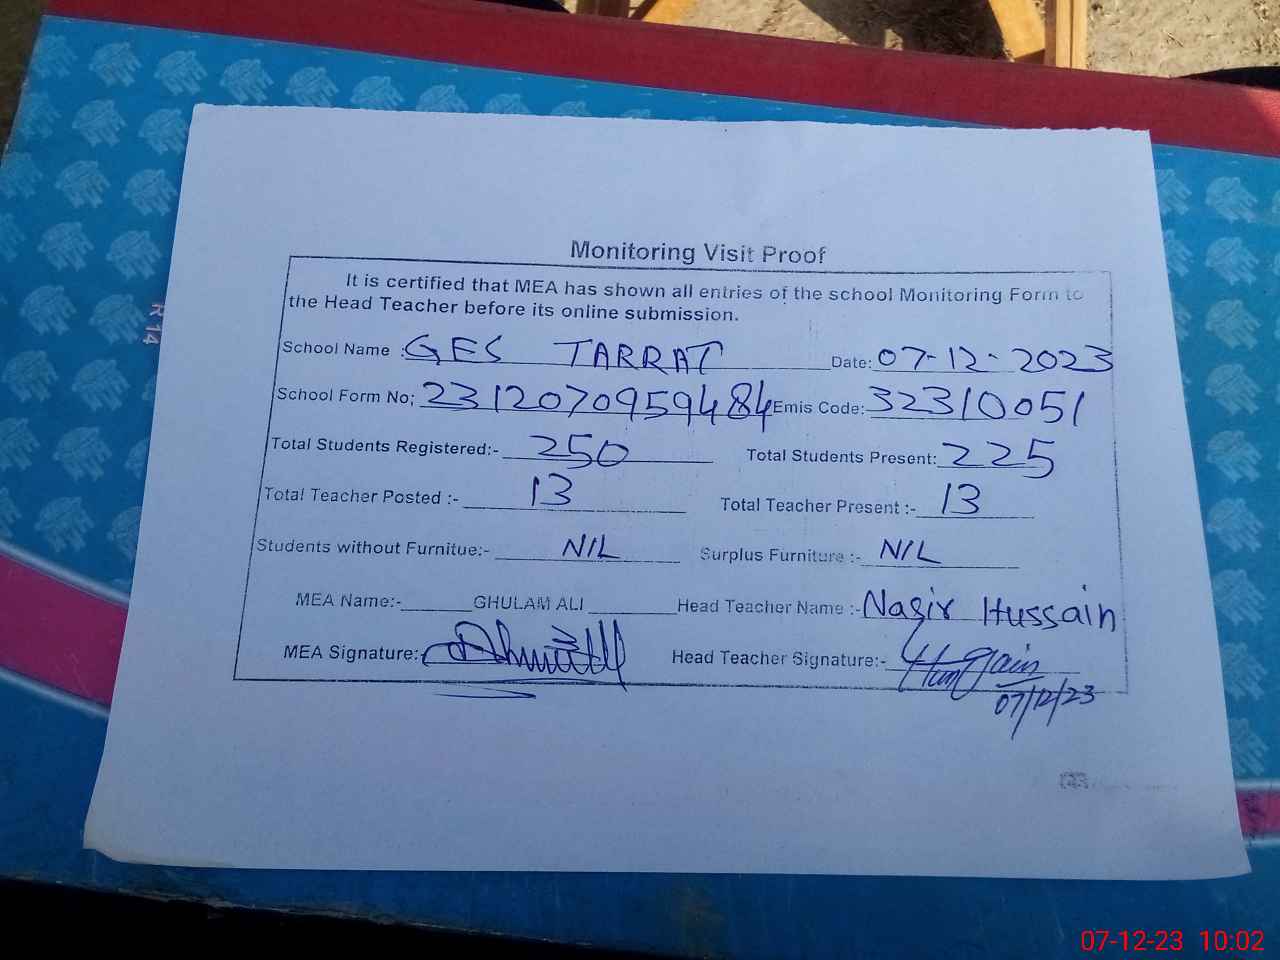 Monitoring Visit Proof
It is certified that MEA has shown all entries of the school Monitoring Form to
the Head Teacher before its online submission.
School Name : GES TARRAT Date: 07-12-2023
School Form No; 2312070959484 Emis Code: 32310051
Total Students Registered:- 250 Total Students Present: 225
Total Teacher Posted :- 13 Total Teacher Present :- 13
Students without Furnitue:- NIL Surplus Furniture :- NIL
MEA Name:- GHULAM ALI Head Teacher Name :- Nasir Hussain
MEA Signature: Head Teacher Signature:-
07/12/23
R 14
07-12-23 10:02